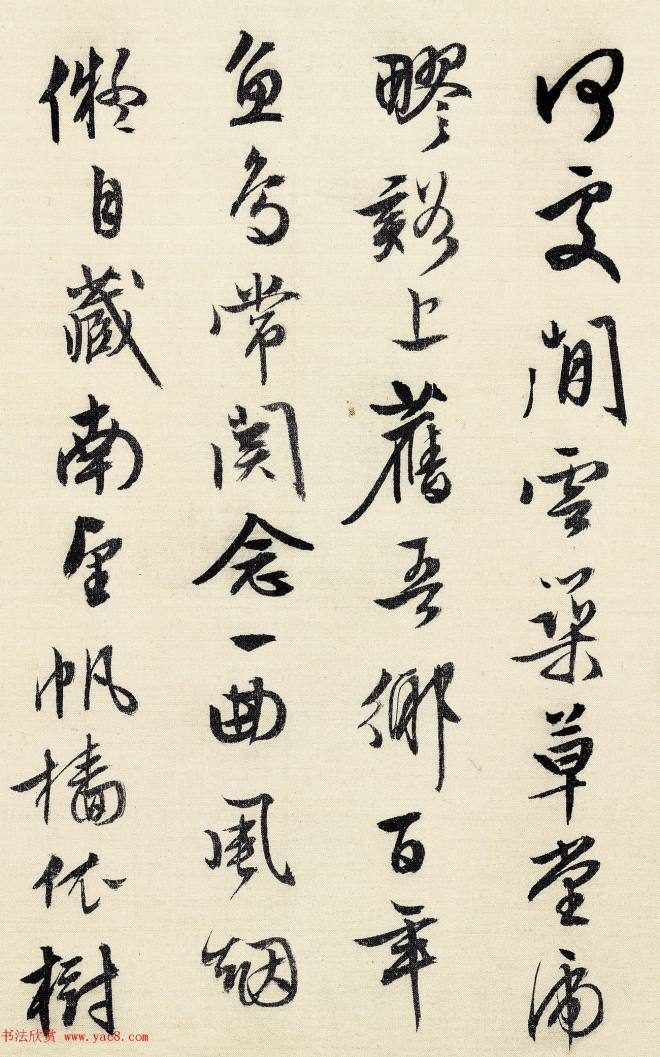 何處閒雲築草堂虎
疁谿上舊吾鄉百年
魚鳥常関念一曲風烟
儗自藏南望帆檣依樹
书法欣赏 www.yac8.com